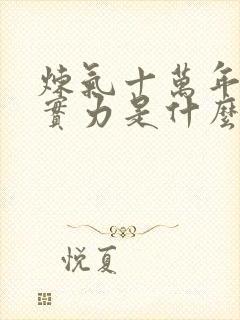 煉氣十萬年
實力是什麼
悅夏